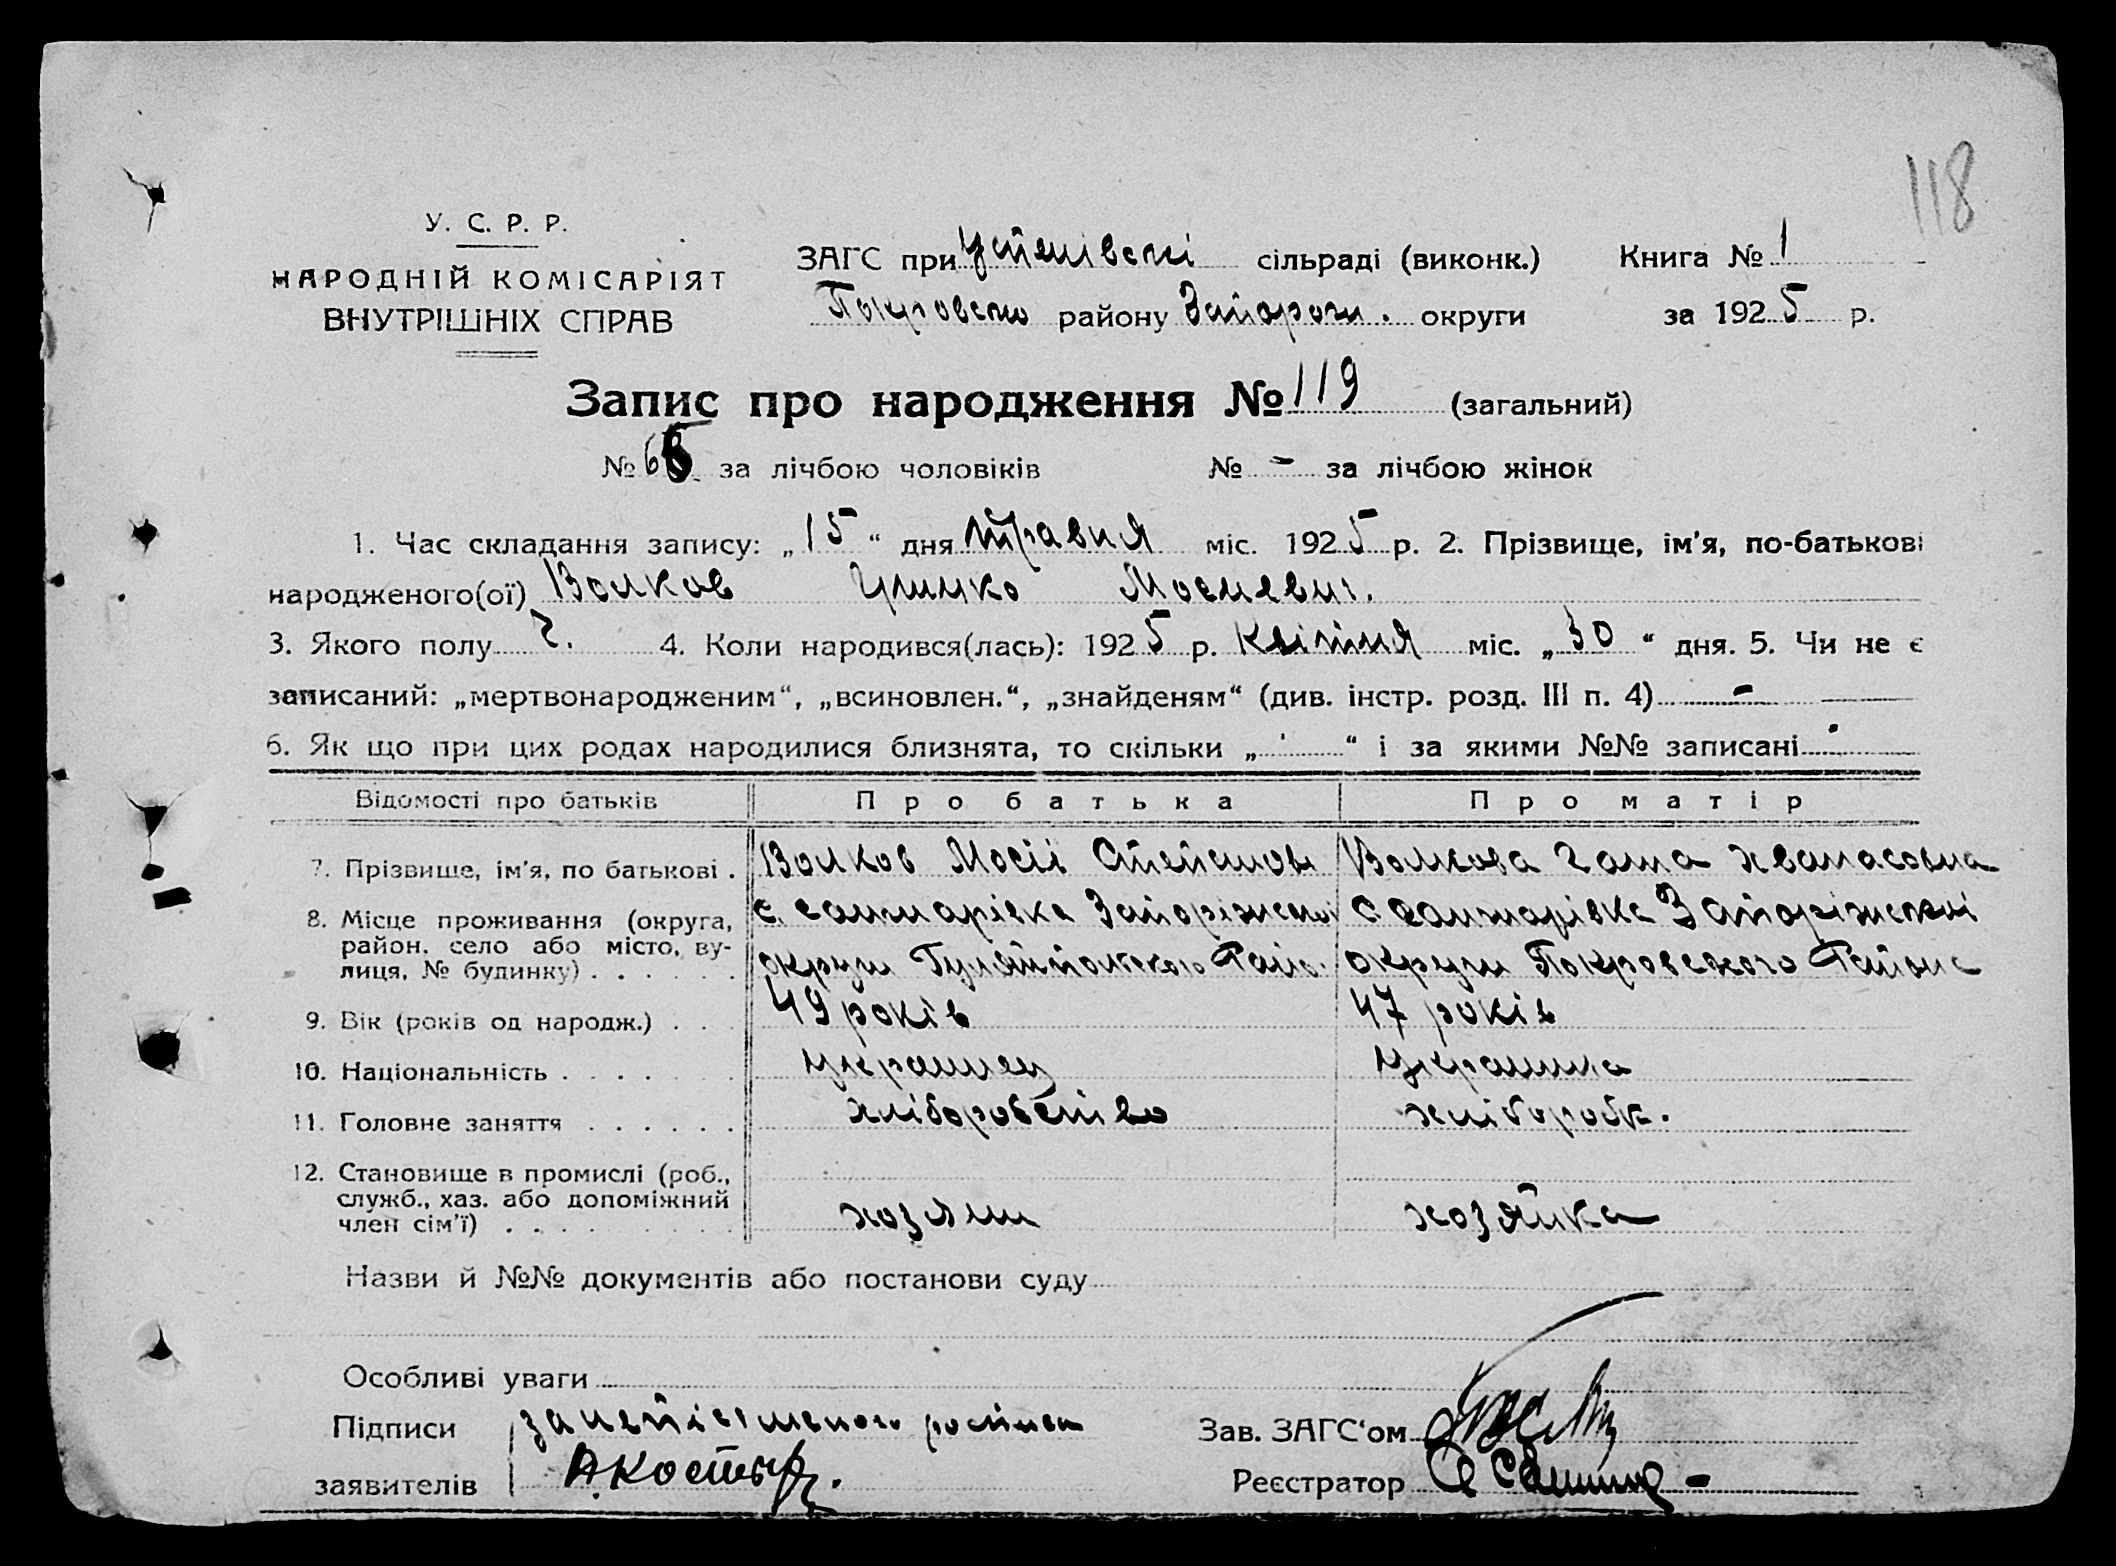 118
У. С. Р. Р.
НАРОДНІЙ КОМІСАРІЯТ
ВНУТРІШНІХ СПРАВ
ЗАГС при сільраді (виконк.) Книга № 1
району Запорожж. округи за 1925 р.
Запис про народження № 119 (загальний)
№ 6 за лічбою чоловіків № - за лічбою жінок
1. Час складання запису: „15“ дня травня міс. 1925 р. 2. Прізвище, ім'я, по-батькові
народженого(ої) Волков Гришко Мосиевич.
3. Якого полу ч. 4. Коли народився(лась): 1925 р. Квітня міс. „30“ дня. 5. Чи не є
записаний: „мертвонародженим“, „всиновлен.“, „знайденям“ (див. інстр. розд. III п. 4) -
6. Як що при цих родах народилися близнята, то скільки „ “ і за якими №№ записані
Відомості про батьків Про батька Про матір
7. Прізвище, ім'я, по батькові . Волков Мосій Степанов Волкова
8. Місце проживання (округа, с. Запоріжської с. Запоріжської
район, село або місто, ву-
лиця, № будинку) . . . . . . округи округи Покровского Района
9. Вік (років од народж.) . . . 49 років 47 років
10. Національність . . . . . . . украинец украинка
11. Головне заняття . . . . . . хліборобство хлібороб.
12. Становище в промислі (роб.,
служб., хаз. або допоміжний
член сім'ї) . . . . . . . хозяин хозяйка
Назви й №№ документів або постанови суду
Особливі уваги
Підписи Зав. ЗАГС'ом
заявителів А Костыр Реєстратор